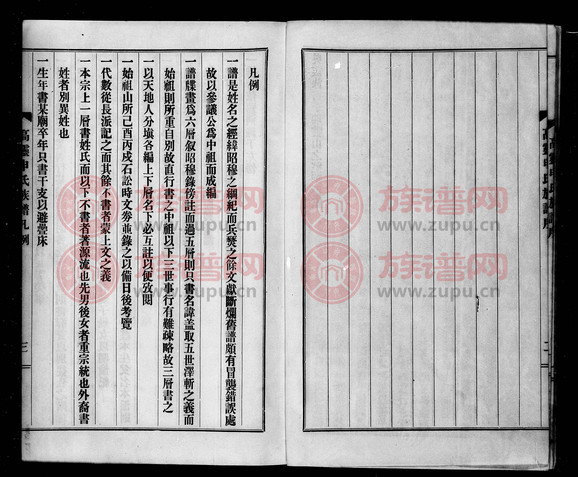 凡例
一譜是姓名之經緯昭穆之綱紀而兵燹之餘文獻斷爛舊譜頗有冒襲錯誤處
故以參議公為中祖而成編
一譜牒畫為六層叙昭穆錄傍註而過五層則只書名諱盖取五世澤斬之義而
始祖則所重自別故直行書之中祖以下二世事行有難疎略故三層書之
一以天地人分塡各編上下層名下必互註以便攷閱
一始祖山所己酉丙戌石訟時文券並錄之以備日後考覽
一代數從長派記之而其餘不書者蒙上文之義
一本宗上一層書姓氏而以下不書者著源流也先男後女者重宗統也外裔書
姓者別異姓也
一生年書某廟卒年只書干支以避疊床
高靈申氏族譜凡例
三
二
族谱网
www.zupu.cn
族谱网
www.zupu.cn
族谱网
www.zupu.cn
族谱网
www.zupu.cn